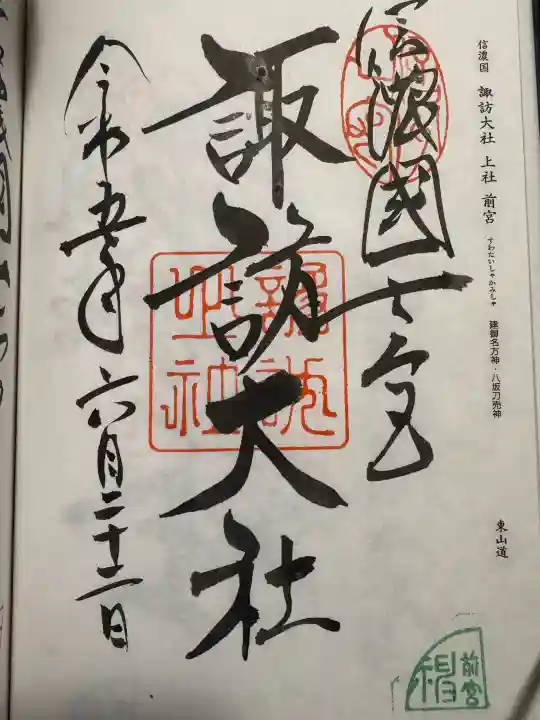 信濃国 諏訪大社 上社 前宮
すわたいしゃかみしゃ
建御名方神・八坂刀売神
東山道
信濃國一之宮
諏訪大社
令和五年六月二十二日
前宮